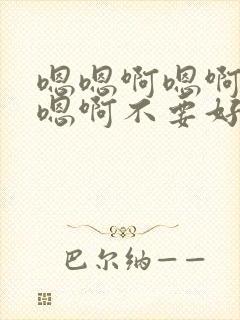 嗯嗯啊嗯啊
嗯啊不要好
巴尔纳——